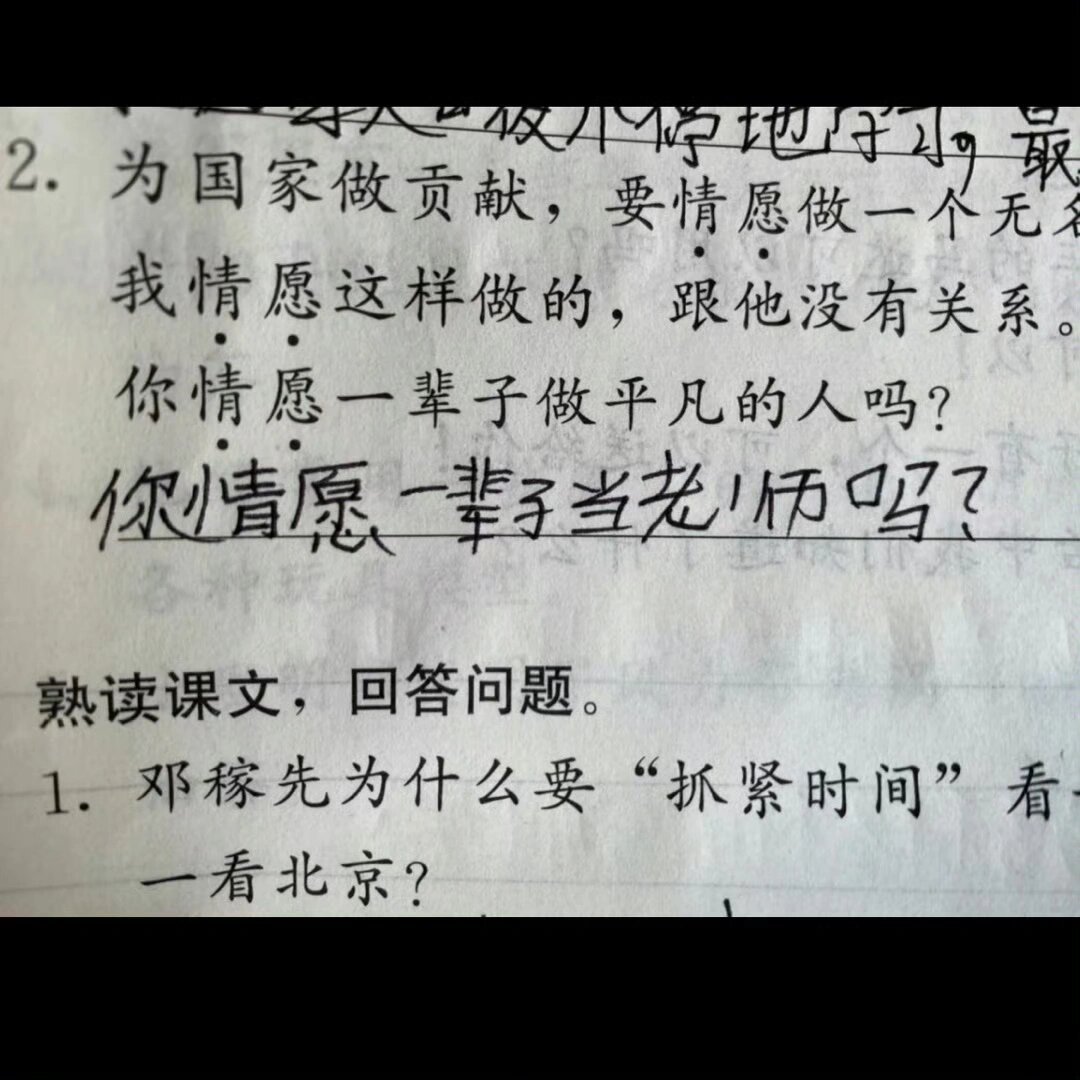 人 被 不停地学习。最
2. 为国家做贡献，要情愿做一个无名
我情愿这样做的，跟他没有关系。
你情愿一辈子做平凡的人吗？
你情愿一辈子当老师吗？
熟读课文，回答问题。
1. 邓稼先为什么要“抓紧时间”看
一看北京？